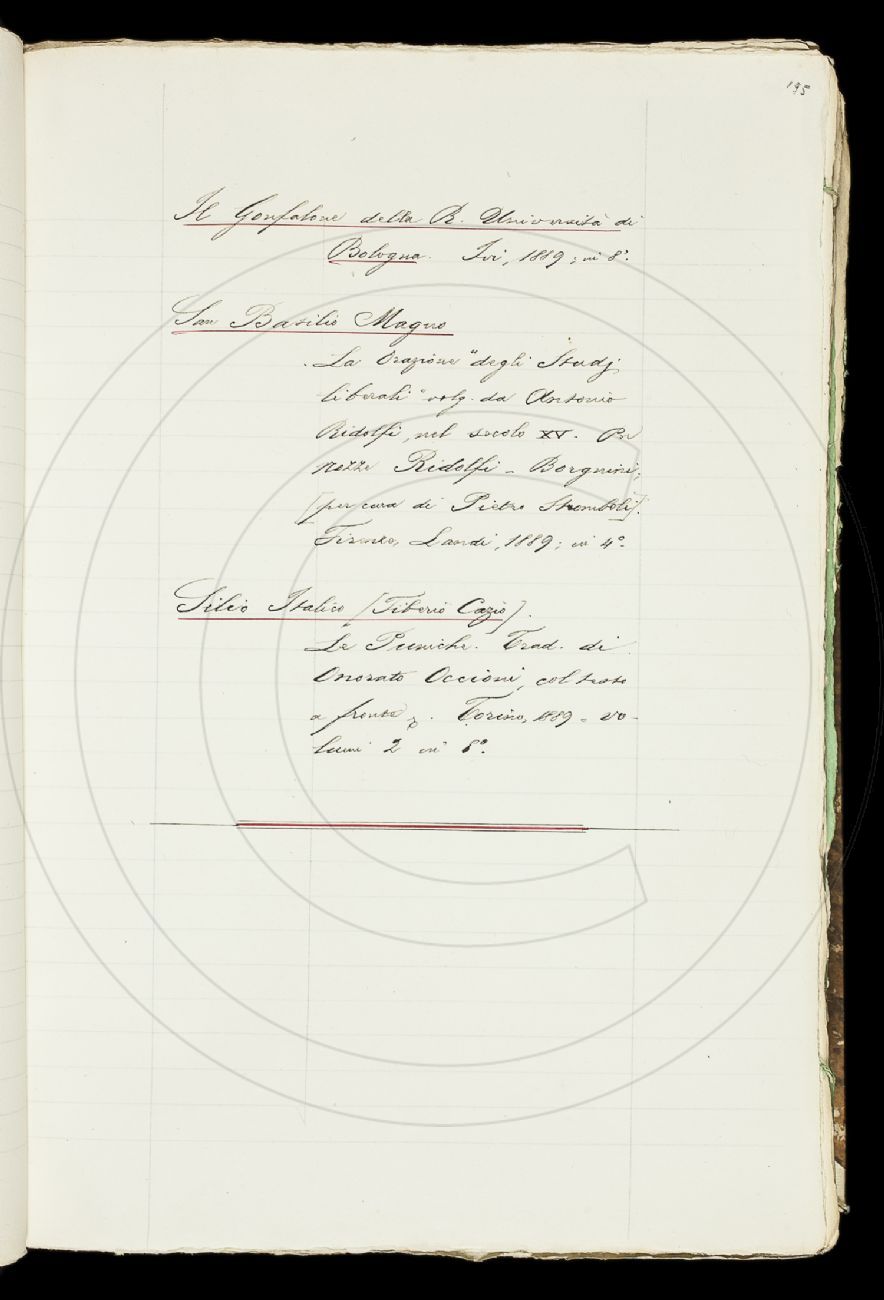 195
Il Gonfalone della R. Università di
Bologna. Ivi, 1889; in 8°.
San Basilio Magno
La Orazione "degli Studj
liberali" volg. da Antonio
Ridolfi, nel secolo XV. Per
nozze Ridolfi - Borgnini;
[per cura di Pietro Stromboli].
Firenze, Landi, 1889; in 4°.
Silio Italico [Tiberio Cazio].
Le Puniche. Trad. di
Onorato Occioni, col testo
a fronte. Torino, 1889 - vo-
lumi 2 in 8°.